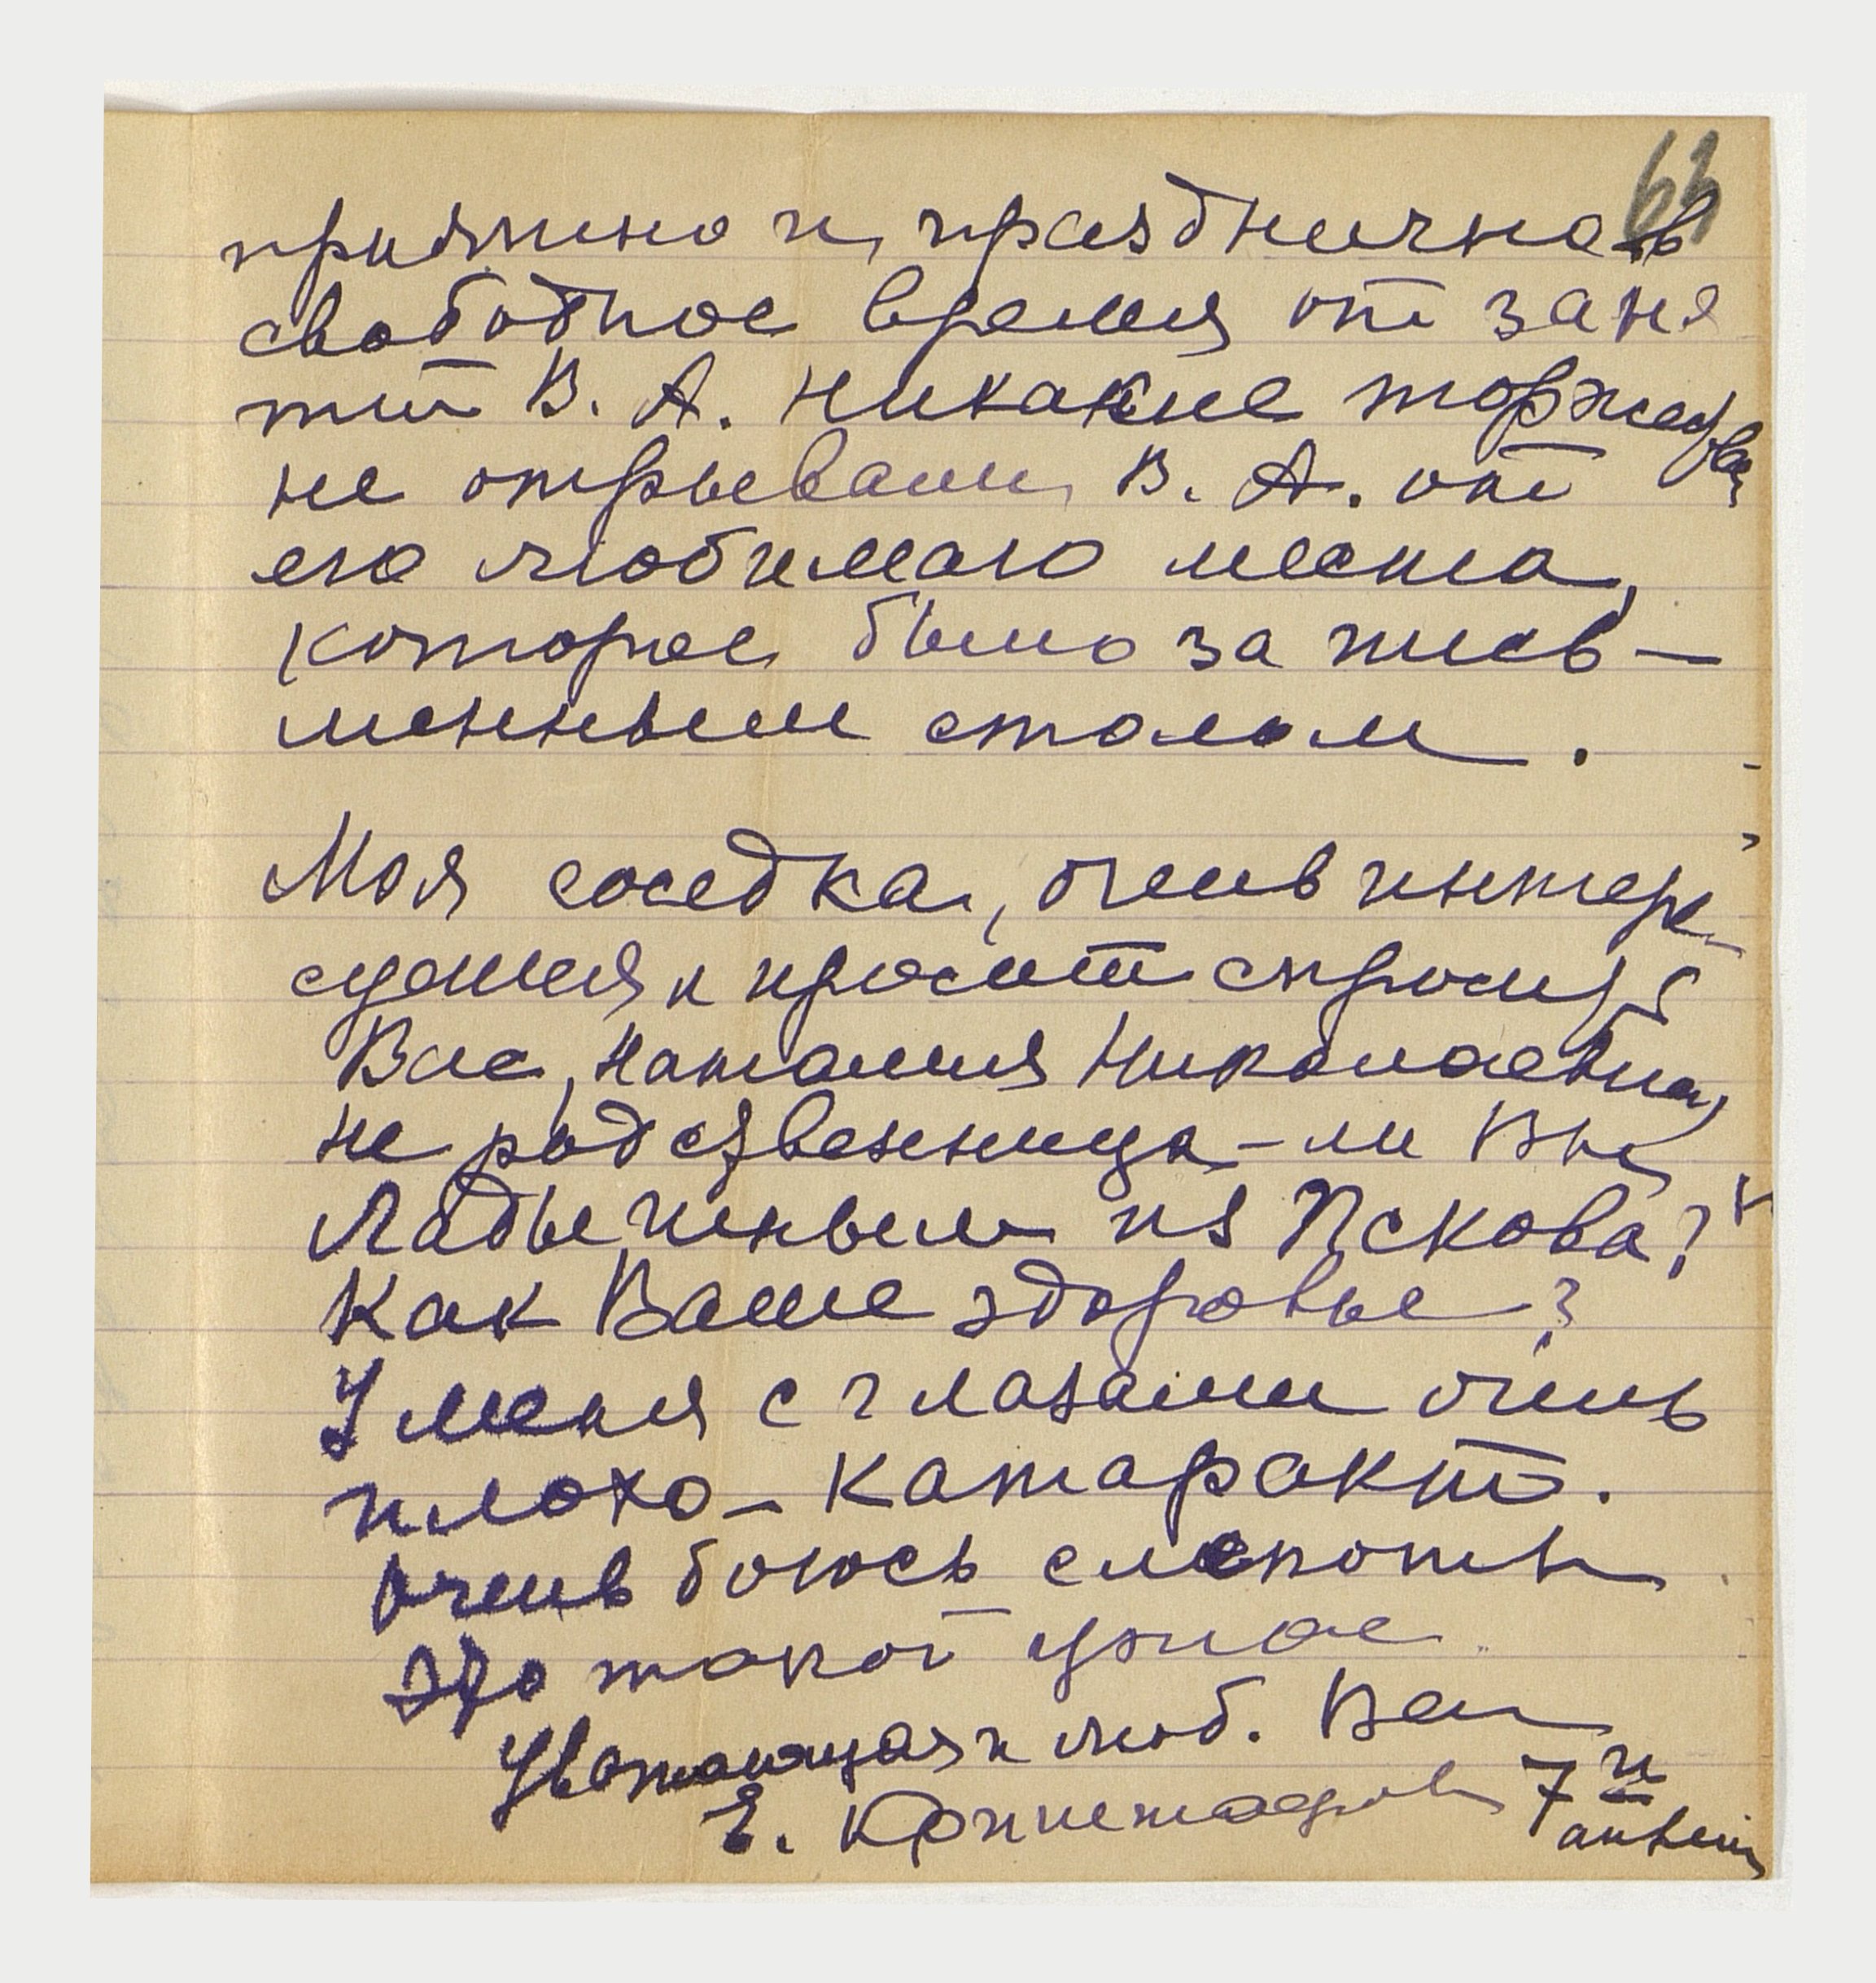 63
приятно и празднично в
свободное время от заня
тий В. А. Никакие торжества
не отрывали В. А. от
его любимаго места,
которое было за пись-
менным столом.
Моя соседка, очень интере-
суется и просит спросить
Вас, Наталия Николаевна,
не родственница-ли Вы
Ладыгиным из Пскова?
Как Ваше здоровье?
У меня с глазами очень
плохо - катаракт.
Очень боюсь слепоты
Это такой ужас
Уважающая и люб. Вас
Е. 7 и